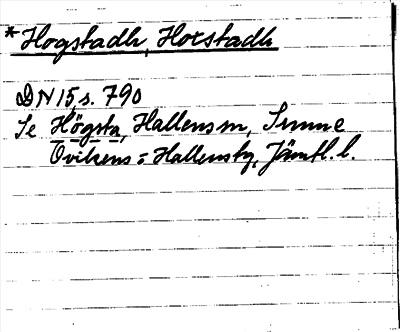 *Hogstadh, Horstadh
DN 15, s. 790
Se Högsta, Hallens sn, Sunne
Ovikens o Hallens tg, Jämtl. l.